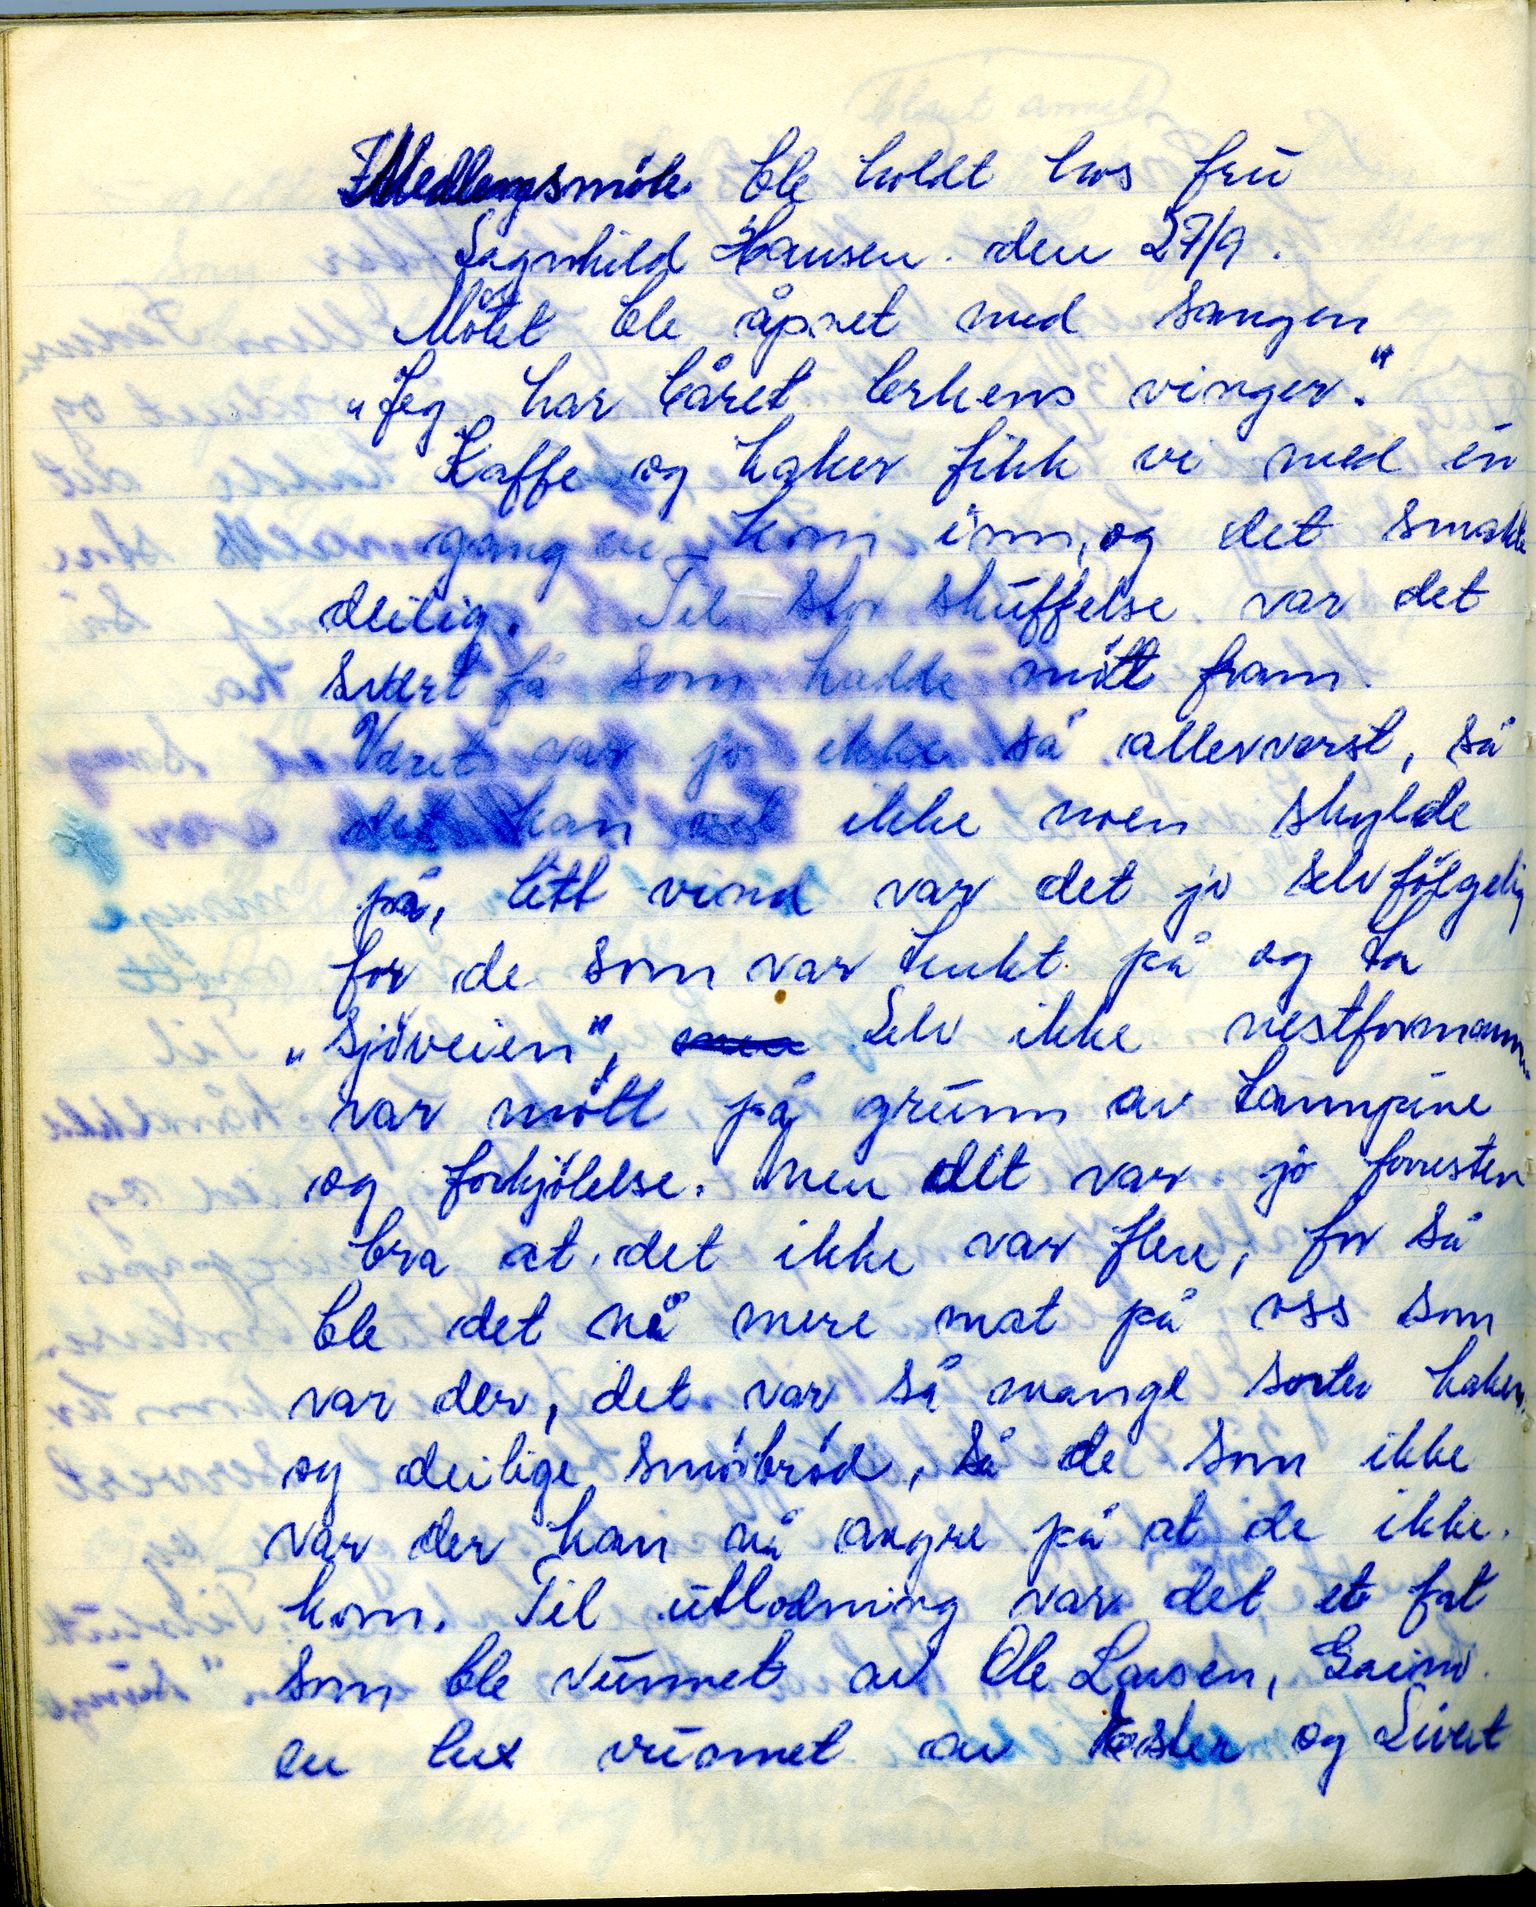 Medlemsmöte ble holdt hos frü
Sagnhild Hansen den 27/9.
Mötet ble åpnet med sangen
„Jeg har båret lerkens vinger."
Kaffe og kaker fikk vi med én
gang vi kom inn, og det smakte
deilig. Til stor sküffelse var det
svært få som hadde mött fram.
Været var jo ikke så allerverst, så
det kan vel ikke noen skylde
på, litt vind var det jo selvfölgelig
for de som var tenkt på og ta
„sjöveien", Selv ikke nestformann
var mött på grünn av tannpine
og forkjölelse. Men det var jo forresten
bra at det ikke var flere, for så
ble det nå mere mat på oss som
var der, det var så mange sorter kaker,
og deilige smörbröd, så de som ikke
var der kan nå angre på at de ikke
kom. Til ütlodning var det et fat
som ble vünnet av Ole Larsen,
en lux vünnet av og Sivert